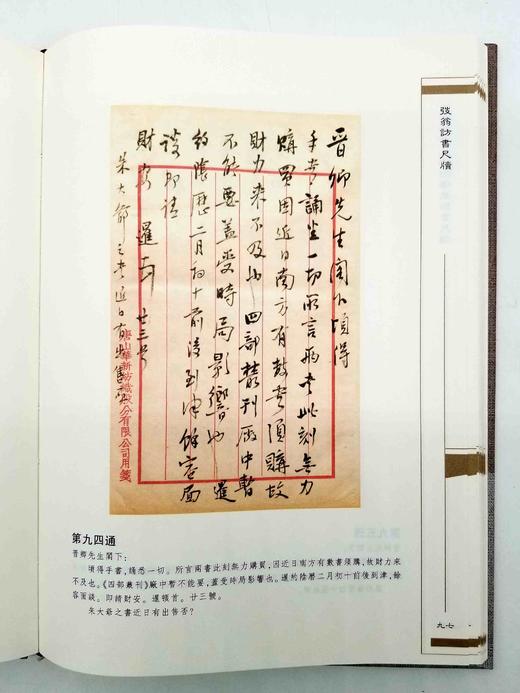 弢翁訪書尺牘
晉卿先生閣下頃得
手書誦坐一切所言兩書此刻無力
購買因近日南方有數書須購故
財力來不及也四部叢刊廠中暫
不能要蓋受時局影響也暹
約陰歷二月初十前後到津餘容面
談即請
財安 暹頓首 廿三号
朱大爺之書近日有出售否
唐山華新紡織股份有限公司用箋
第九四通
晉卿先生閣下：
頃得手書，誦悉一切。所言兩書此刻無力購買，因近日南方有數書須購，故財力來不
及也。《四部叢刊》廠中暫不能要，蓋受時局影響也。暹約陰曆二月初十前後到津，餘
容面談。即請財安。暹頓首。廿三號。
朱大爺之書近日有出售否？
九七